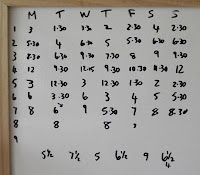 M T W T F S S
1 3 1.30 3.30 2 2.30 4 2.30
2 5.30 4 6.30 5 5.30 6.30 6.30
3 8.30 6.30 9.30 7.30 8 9 9.30
4 12 9.30 12.15 9.30 10.30 12
5 3 12.30 3 12.30 1.30 2 2.30
6 6 3.30 6 3 4 5 5.30
7 8 6 9 5.30 7 8 8.30
8 8 8
9
5½ 7½ 5 6½ 9 6½
4